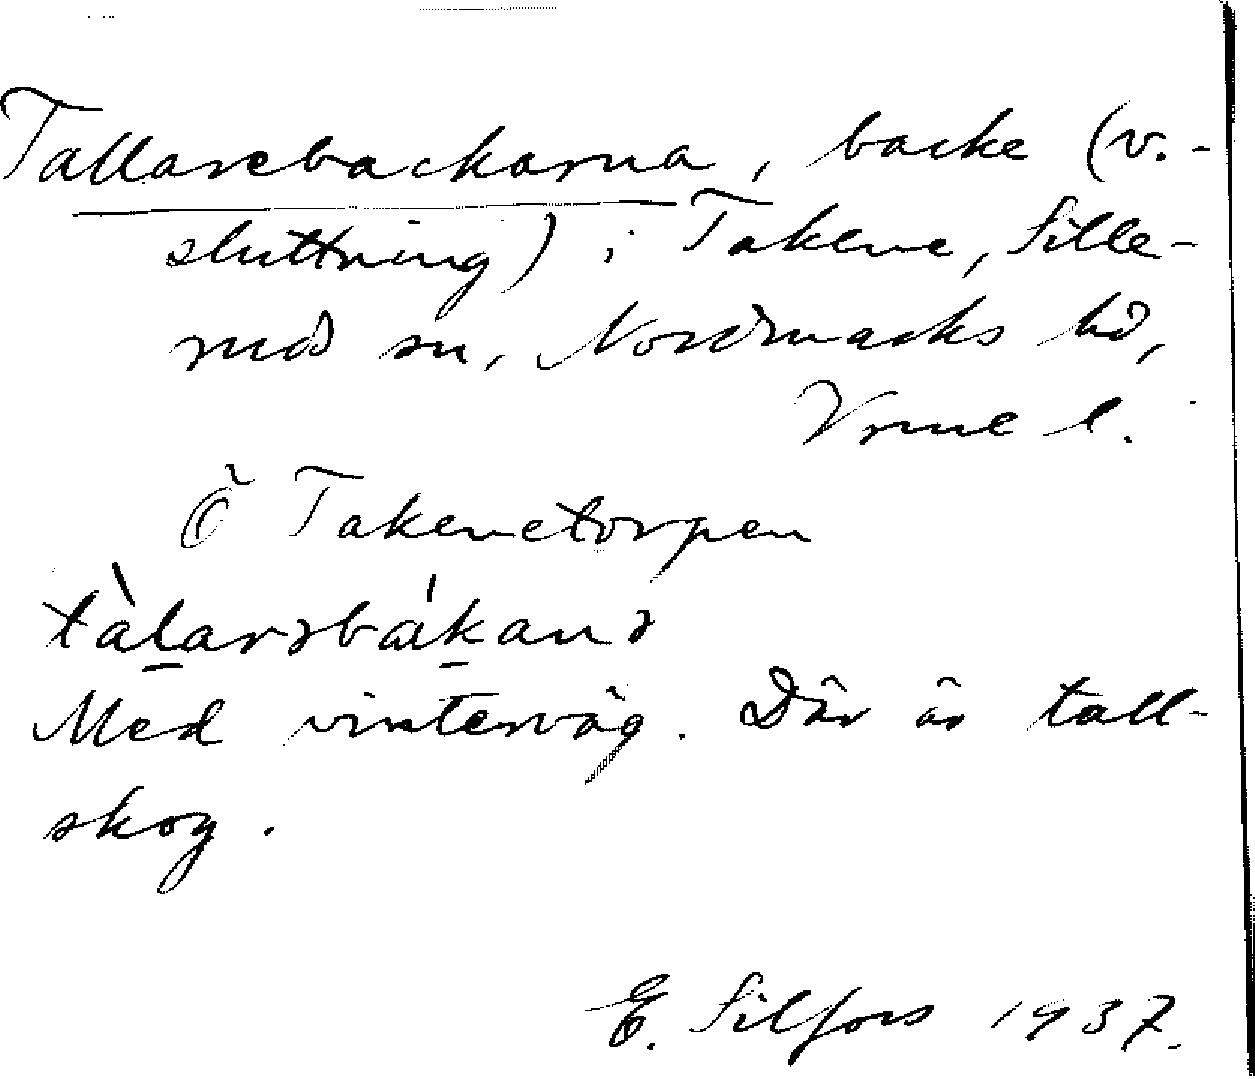 Tallarebackarna, backe (v.-
sluttning) i Takene, Sille-
ruds sn, Nordmarks hd,
Vrml l.
Ö Takenetorpen
tàlarəbákanə
Med vinterväg. Där är tall-
skog.
E. Silfors 1937.